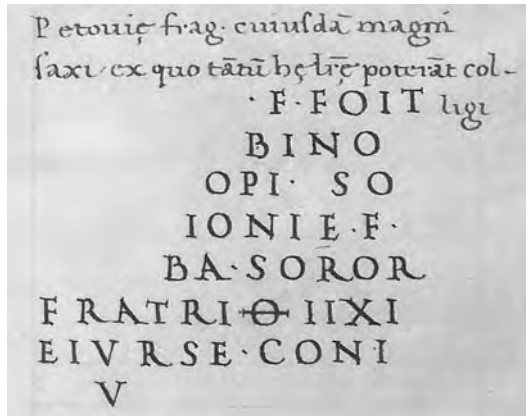 Petouię frag. cuiusdā magni
saxi ex quo tātū hę lr̄ę poterāt col-
· F · FOIT ligi
BINO
OPI · SO
IONIE · F ·
BA · SOROR
FRATRI Θ IIXI
EIVRSE · CONI
V